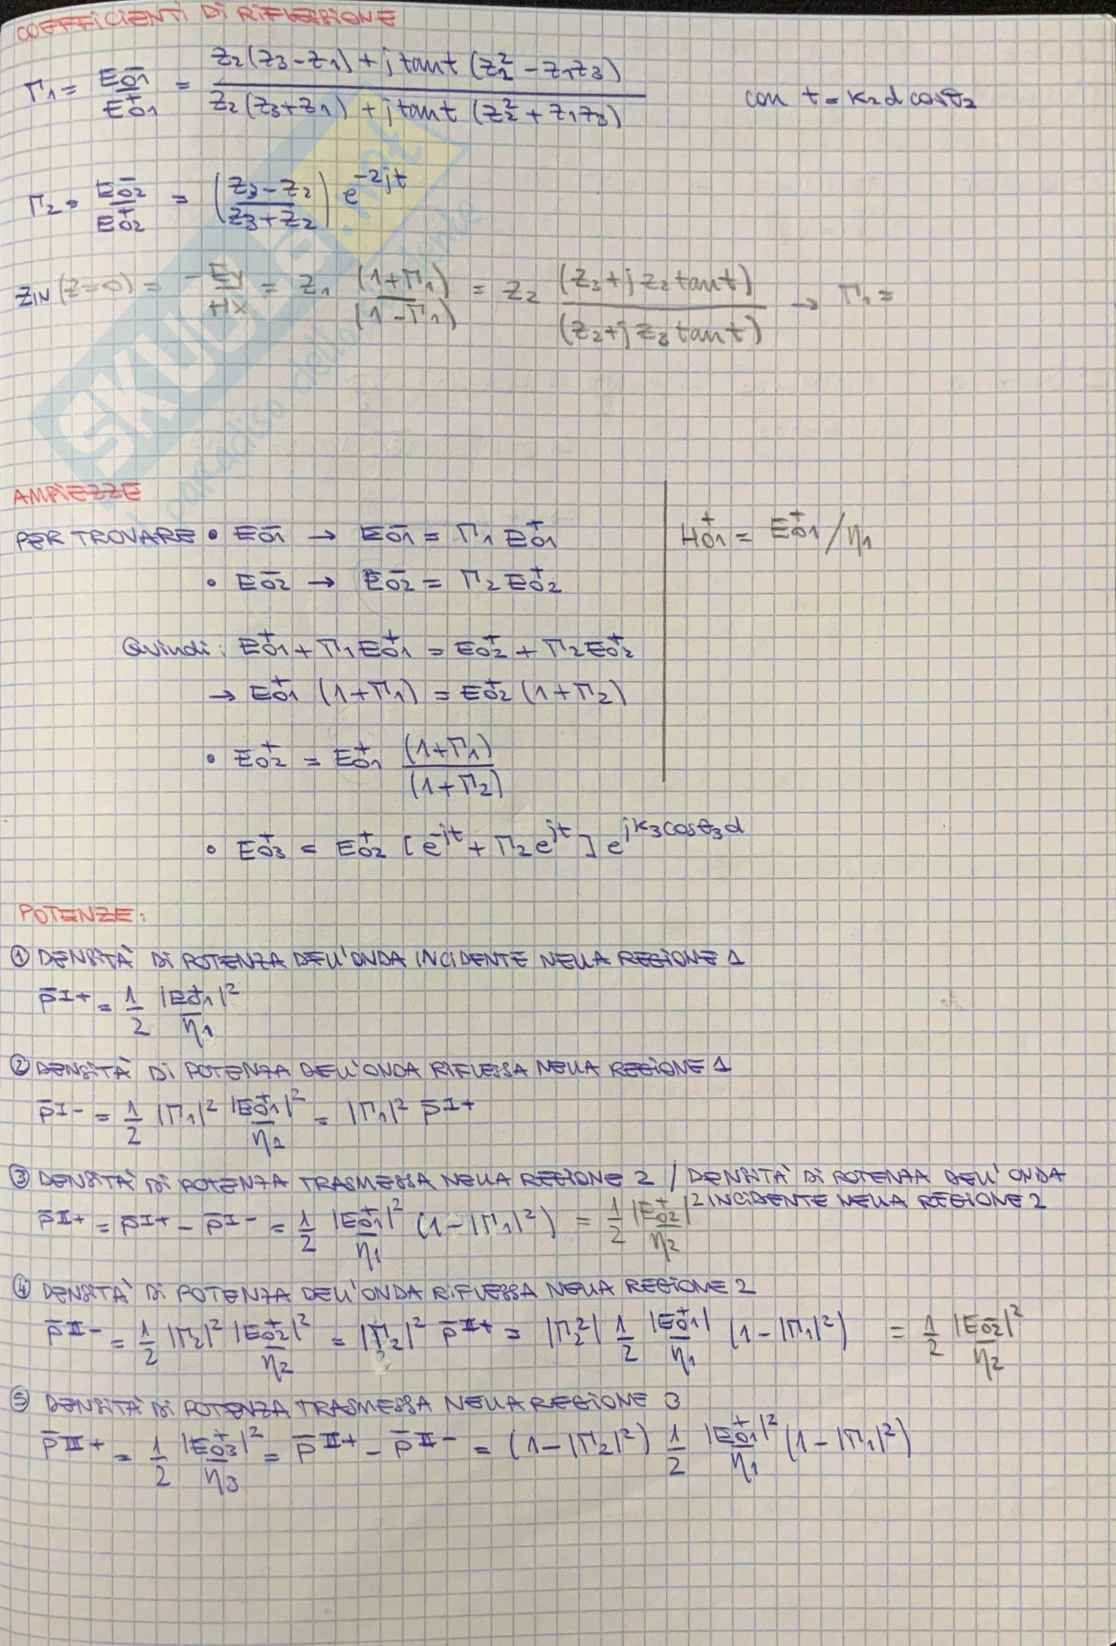 COEFFICIENTI DI RIFLESSIONE
Γ1 = E⁻01 / E⁺01 = (Z2(Z3−Z1) + j tan t (Z2² − Z1Z3)) / (Z2(Z3+Z1) + j tan t (Z2² + Z1Z3)) con t = k2 d cosθ2
Γ2 = E⁻02 / E⁺02 = ((Z3−Z2) / (Z3+Z2)) e^(−2jt)
ZIN (Z=0) = −Ey / Hx = Z1 (1+Γ1) / (1−Γ1) = Z2 (Z3+j Z2 tan t) / (Z2+j Z3 tan t) → Γ1 =
AMPIEZZE
PER TROVARE • E⁻01 → E⁻01 = Γ1 E⁺01
H⁺01 = E⁺01/η1
• E⁻02 → E⁻02 = Γ2 E⁺02
Quindi: E⁺01 + Γ1E⁺01 = E⁺02 + Γ2E⁺02
→ E⁺01 (1+Γ1) = E⁺02 (1+Γ2)
• E⁺02 = E⁺01 (1+Γ1) / (1+Γ2)
• E⁺03 = E⁺02 [e^(−jt) + Γ2 e^(jt)] e^(jk3cosθ3d)
POTENZE:
① DENSITÀ DI POTENZA DELL'ONDA INCIDENTE NELLA REGIONE 1
P̄ᴵ⁺ = 1/2 |E⁺01|² / η1
② DENSITÀ DI POTENZA DELL'ONDA RIFLESSA NELLA REGIONE 1
P̄ᴵ⁻ = 1/2 |Γ1|² |E⁺01|² / η2 = |Γ1|² P̄ᴵ⁺
③ DENSITÀ DI POTENZA TRASMESSA NELLA REGIONE 2 / DENSITÀ DI POTENZA DELL'ONDA
INCIDENTE NELLA REGIONE 2
P̄ᴵᴵ⁺ = P̄ᴵ⁺ − P̄ᴵ⁻ = 1/2 |E⁺01|² / η1 (1−|Γ1|²) = 1/2 |E⁺02|² / η2
④ DENSITÀ DI POTENZA DELL'ONDA RIFLESSA NELLA REGIONE 2
P̄ᴵᴵ⁻ = 1/2 |Γ2|² |E⁺02|² / η2 = |Γ2|² P̄ᴵᴵ⁺ = |Γ2²| 1/2 |E⁺01| / η1 (1−|Γ1|²) = 1/2 |E⁻02|² / η2
⑤ DENSITÀ DI POTENZA TRASMESSA NELLA REGIONE 3
P̄ᴵᴵᴵ⁺ = 1/2 |E⁺03|² / η3 = P̄ᴵᴵ⁺ − P̄ᴵᴵ⁻ = (1−|Γ2|²) 1/2 |E⁺01|² / η1 (1−|Γ1|²)